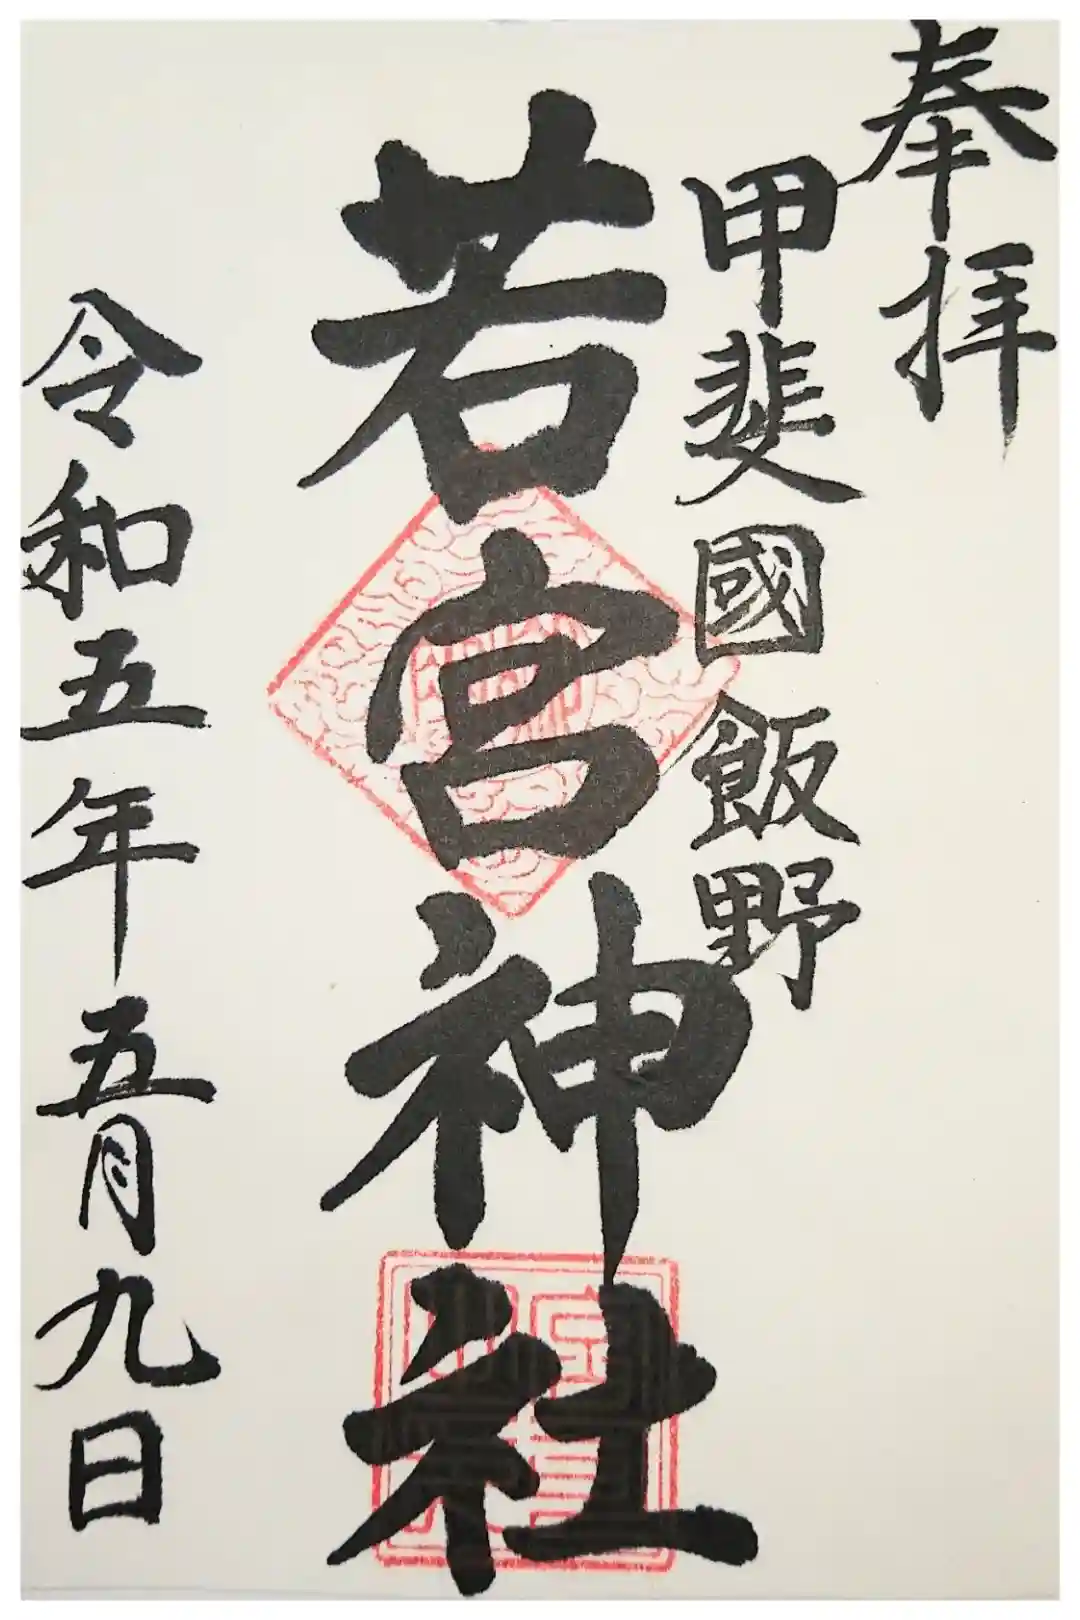 奉拝
甲斐國飯野
若宮神社
令和五年五月九日